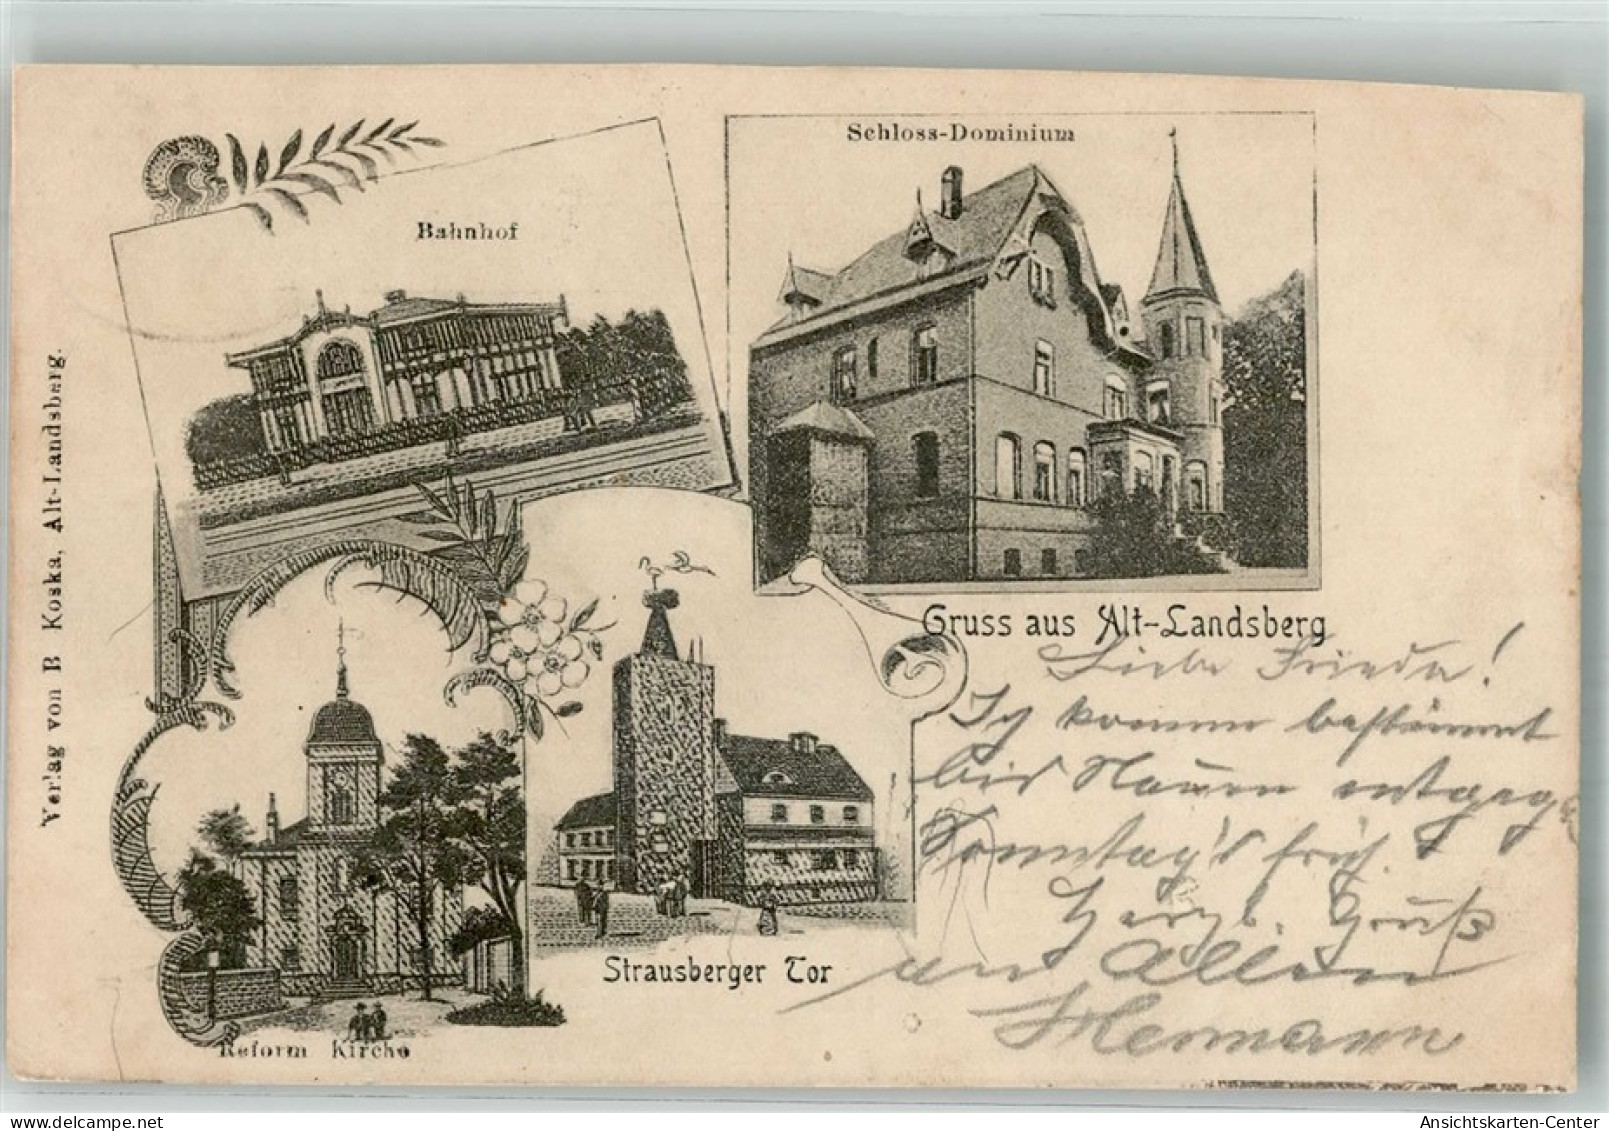 Bahnhof
Schloss-Dominium
Verlag von B Koska, Alt-Landsberg.
Gruss aus Alt-Landsberg
Liebe Frieda!
Ich komme bestimmt
bis Nauen entgeg
Sonntag's früh.
Herzl. Gruß
an Allen
Hermann
Strausberger Tor
Reform Kirche
Ansichtskarten-Center